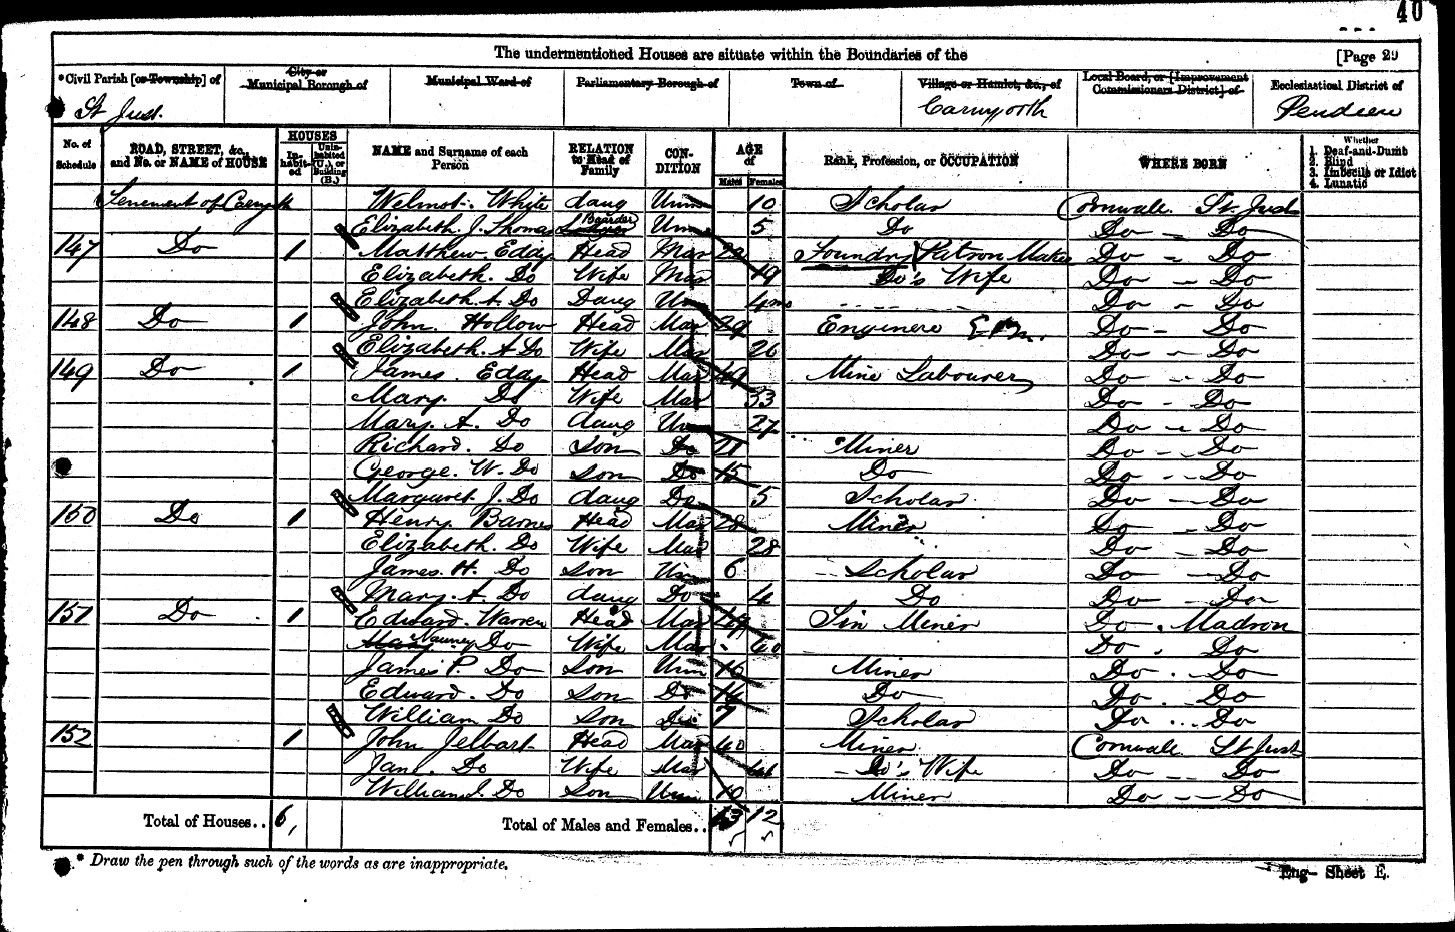 40
The undermentioned Houses are situate within the Boundaries of the
[Page 29
*Civil Parish [or Township] of
City or Municipal Borough of
Municipal Ward of
Parliamentary Borough of
Town of
Village or Hamlet, &c., of
Local Board, or [Improvement Commissioners District] of
Ecclesiastical District of
St Just.
Carnyorth
Pendeen
No. of Schedule
ROAD, STREET, &c., and No. or NAME of HOUSE
HOUSES
Inhabited
Uninhabited (U.), or Building (B.)
NAME and Surname of each Person
RELATION to Head of Family
CONDITION
AGE of
Males
Females
Rank, Profession, or OCCUPATION
WHERE BORN
Whether
1. Deaf-and-Dumb
2. Blind
3. Imbecile or Idiot
4. Lunatic
Tenement of Wilmot. White daug Unm 10 Scholar Cornwall St Just
Elizabeth. J. Thomas Boarder Unm 5 Do Do Do
147 Do 1 Matthew. Eddy Head Mar Foundry Patron Maker Do Do
Elizabeth. Do Wife Mar 19 Do's Wife Do Do
Elizabeth. A. Do Daug Un 4 mo Do Do
148 Do 1 John. Hollow Head Mar 29 Enginere Do Do
Elizabeth. A Do Wife Mar 26 Do Do
149 Do 1 James. Eddy Head Mar 49 Mine Labourer Do Do
Mary. Do Wife Mar 53 Do Do
Mary. A. Do daug Un 27 Do Do
Richard. Do Son Do Miner Do Do
George. W. Do Son Do 15 Do Do Do
Margaret. J. Do daug Do 5 Scholar Do Do
150 Do 1 Henry Barnes Head Mar 28 Miner Do Do
Elizabeth. Do Wife Mar 28 Do Do
James. H. Do Son Un 6 Scholar Do Do
Mary. A. Do daug Do 4 Do Do Do
151 Do 1 Edward. Warren Head Mar 49 Tin Miner Do Madron
Mary Nanney Do Wife Mar 40 Do Do
James P. Do Son Unm 16 Miner Do Do
Edward. Do Son Do 14 Do Do Do
William Do Son Do 7 Scholar Do Do
152 1 John Jelbart Head Mar 40 Miner Cornwall St Just
Jane. Do Wife Mar Do's Wife Do Do
William J. Do Son Unm 10 Miner Do Do
Total of Houses.. 6
Total of Males and Females.. 13 12
* Draw the pen through such of the words as are inappropriate.
Eng— Sheet E.